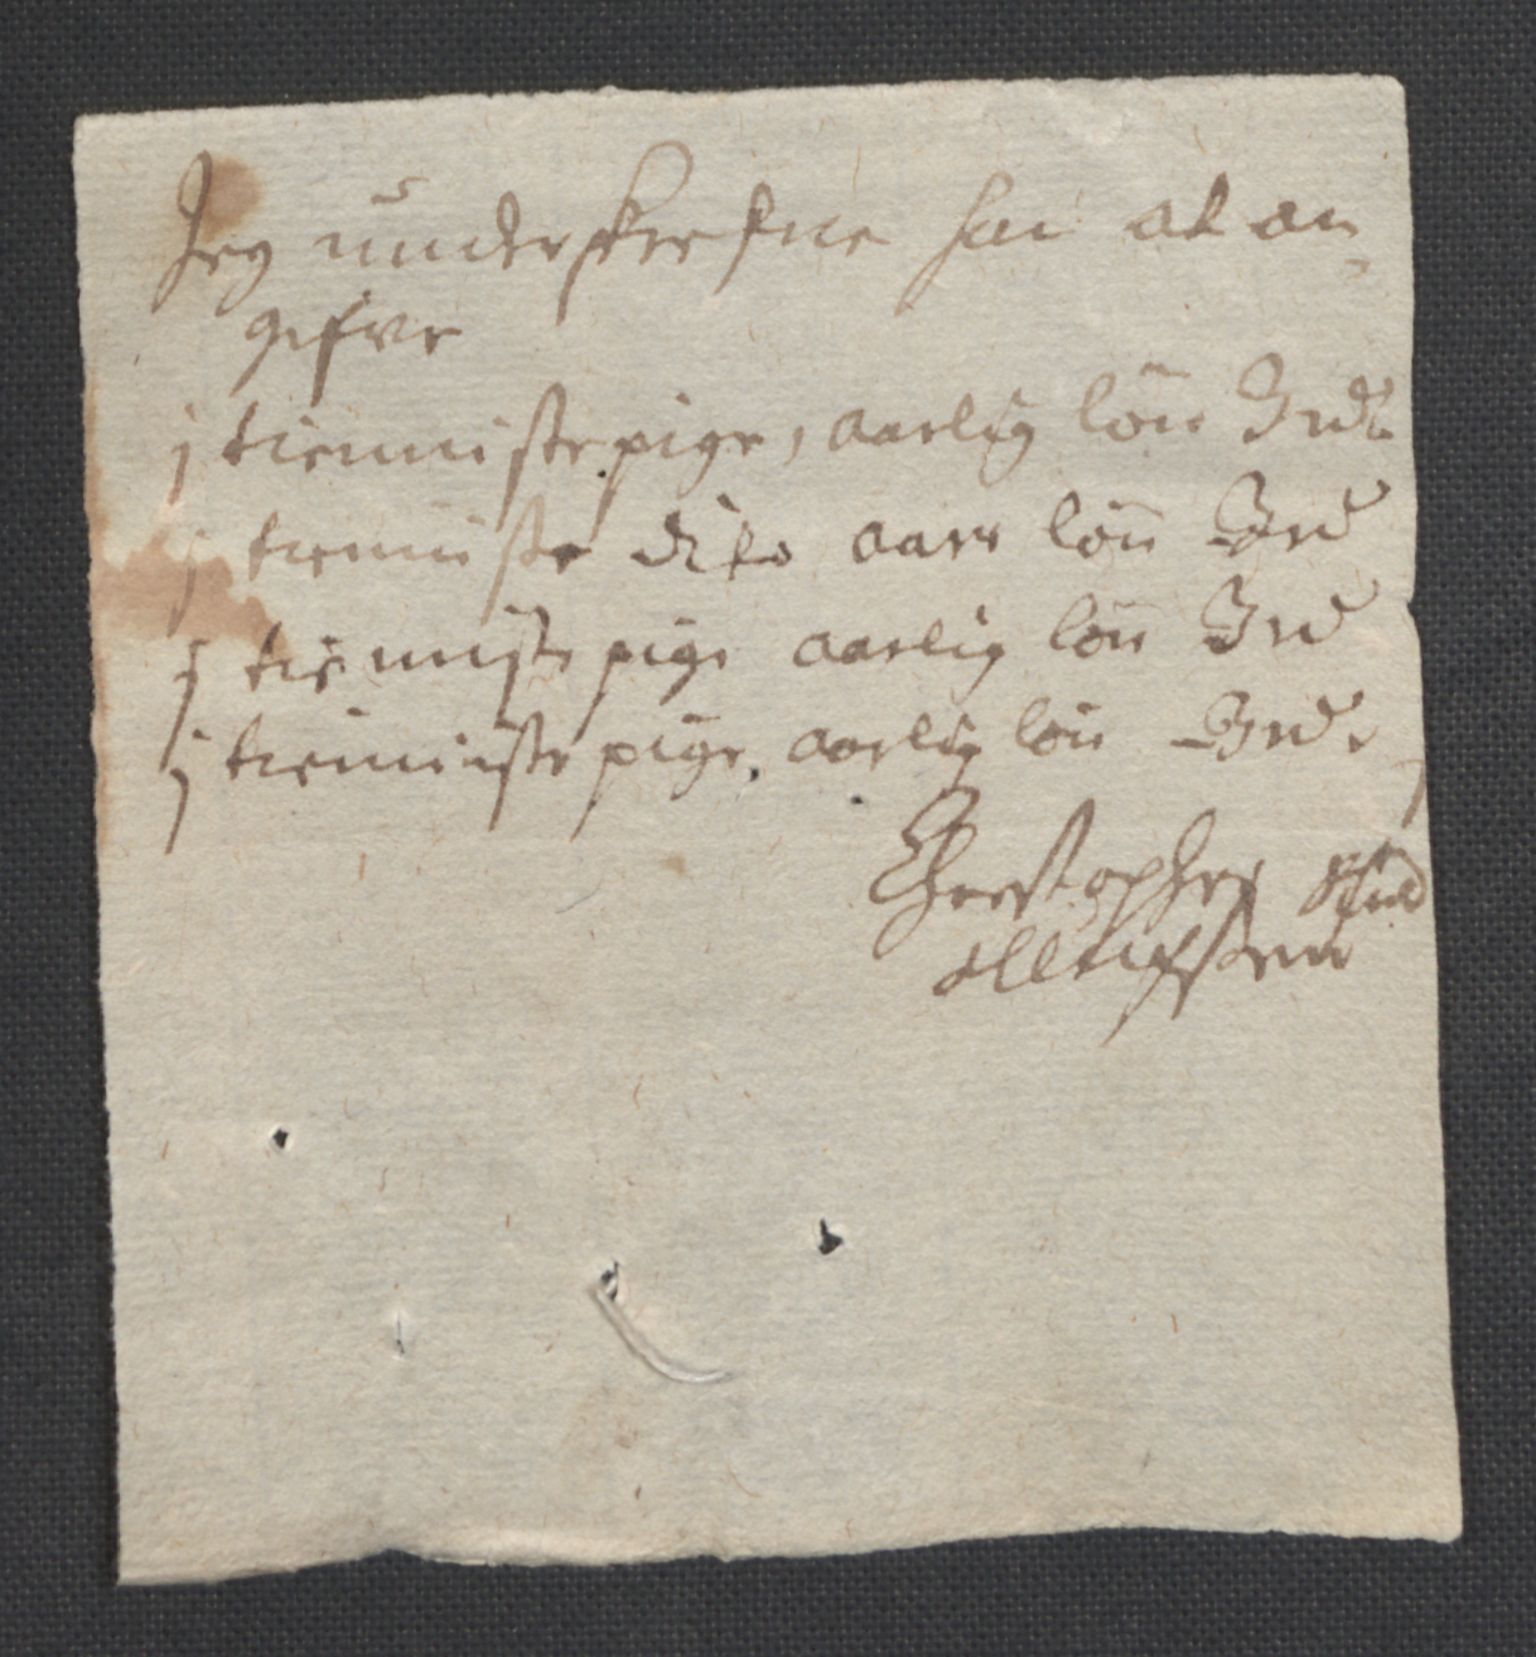 Jeg underskrefne har at an-
gifve
j tienniste pige, aarlig lön 3 rd.
j tienniste dito aars lön 3 rd
j tienniste pige aarlig lön 3 rd
j tienniste pige, aarlig lön 3 rd.
Christopher